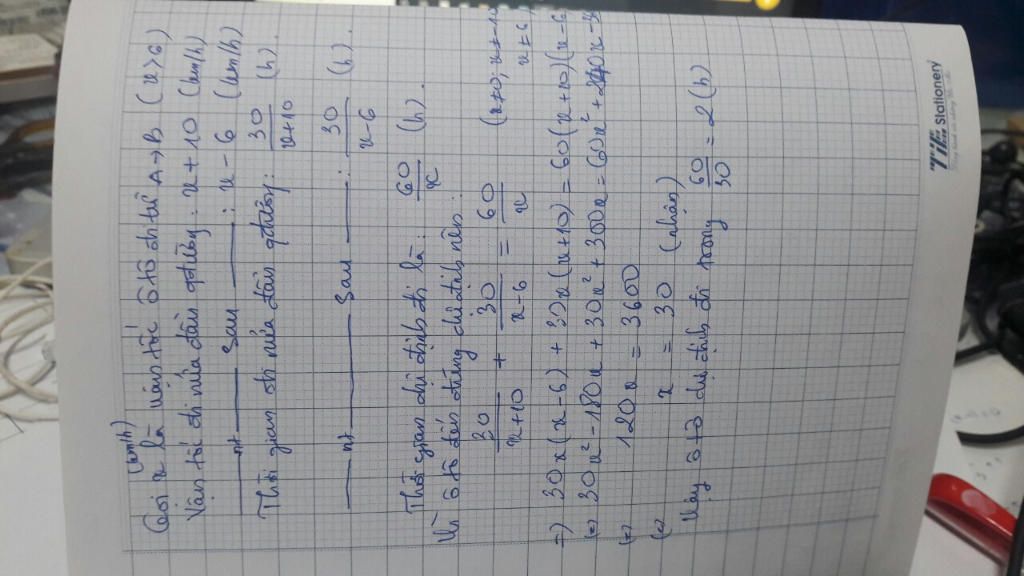 (km/h)
Gọi x là vận tốc ô tô đi từ A → B (x > 6)
Vận tốc đi nửa đầu qđường : x + 10 (km/h)
—— nt —— Sau —— : x - 6 (km/h)
Thời gian đi nửa đầu qđường : 30/x+10 (h).
—— nt —— Sau —— : 30/x-6 (h).
Thời gian dự định đi là : 60/x (h).
Vì ô tô đến đúng dự định nên :
30/x+10 + 30/x-6 = 60/x (x≠0; x≠-10
x≠6
=) 30x(x-6) + 30x(x+10) = 60(x+10)(x-6
(=) 30x² - 180x + 30x² + 300x = 60x² + 240x - 36
(=) 120x = 3600
(=) x = 30 (nhận)
Vậy ô tô dự định đi trong 60/30 = 2 (h)
Tiến
Stationery